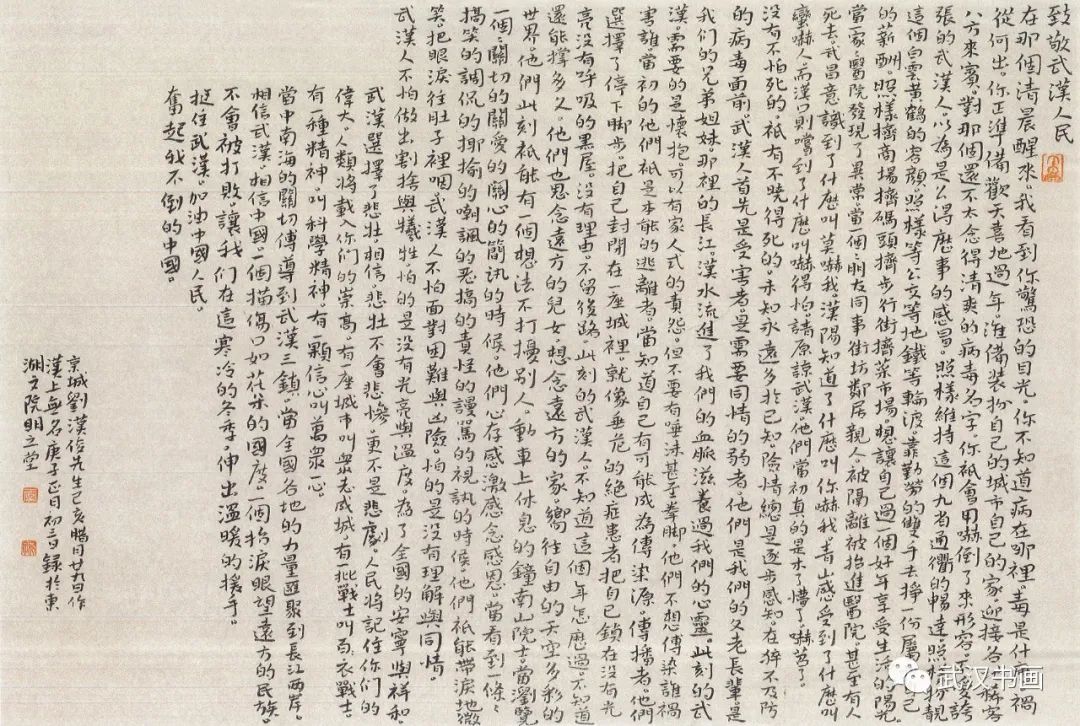 致敬武漢人民
在那個清晨醒來。我看到你驚恐的目光。你不知道病在哪裡。毒是什麼。禍
從何出。你正準備歡天喜地過年。准備裝扮自己的城市自己的家。迎接各
八方來賓。對那個還不太念得清爽的病毒名字。你祇會用嚇倒了來形容。
張的武漢人。以為是么得麼事的感冒。照樣維持這個九省通衢的暢達。照樣扮靚
這個白雲黄鶴的容顏。照樣等公交等地鐵等輪渡。靠勤勞的雙手去掙一份屬於自己
的薪酬。照樣擠商場擠碼頭擠步行街擠菜市場。想讓自己過一個好年享受生活的陽光
當一家醫院發現了異常。當一個朋友同事街坊鄰居親人被隔離被抬進醫院甚至有人
死去。武昌意識到了什麼叫莫嚇我。漢陽知道了什麼叫你嚇我。青山感受到了什麼叫
蠻嚇人。而漢口則嘗到了什麼叫嚇得怕。請原諒武漢。他們當初真的是木了懵了嚇著了。
没有不怕死的。祇有不曉得死的。未知永遠多於已知。險情總是逐步感知。在猝不及防
的病毒面前。武漢人首先是受害者。是需要同情的弱者。他們是我們的父老長輩。是
我們的兄弟姐妹那裡的長江。漢水流進了我們的血脈滋養過我們的心靈。此刻的武
漢需要的是懷抱。可以有家人式的責怨。但不要有唾沫甚至拳脚他們不想傳染誰禍
害誰。當初的他們祇是本能的逃離者。當知道自己有可能成為傳染源。傳播者。他們
選擇了停下脚步。把自己封閉在一座城裡。就像垂危的絶症患者把自己鎖在没有光
亮没有呼吸的黑屋。没有理由。不留後路。此刻的武漢人。不知道這個年怎麼過。不知道
還能撑多久。他們也思念遠方的兒女。想念遠方的家。嚮往自由的天空多彩的
世界。他們此刻祇能有一個想法不打擾别人。動車上休息的鐘南山院士。當瀏覽
一個個關切的關愛的關心的簡訊的時候。他們心存感激感念感恩。當看到一條條
搞笑的調侃的揶揄的嘲諷的惡搞的責怪的謾罵的視訊的時候。他們祇能帶淚地微
笑。把眼淚往肚子裡咽武漢人不怕面對困難與凶險。怕的是没有理解與同情。
武漢人不怕做出割捨與犧牲。怕的是没有光亮與温度。為了全國的安寧與祥和
武漢選擇了悲壯。相信。悲壯不會悲慘。更不是悲劇。人民將記住你們的
偉大。人類將載入你們的崇高。有一座城市叫衆志成城。有一批戰士叫白衣戰士。
有一種精神。叫科學精神。有一顆信心叫萬衆一心。
當中南海的關切傳導到武漢三鎮。當全國各地的力量匯聚到長江兩岸。
相信武漢。相信中國。一個描傷口如花朵的國度。一個抬淚眼望遠方的民族。
不會被打敗。讓我們在這寒冷的冬季。伸出温暖的援手。
挺住武漢。加油中國人民。
奮起我不倒的中國。
京城劉漢俊先生己亥臘月廿九日作
漢上無名庚子正月初三日録於東
湖文院明之堂
武汉书画